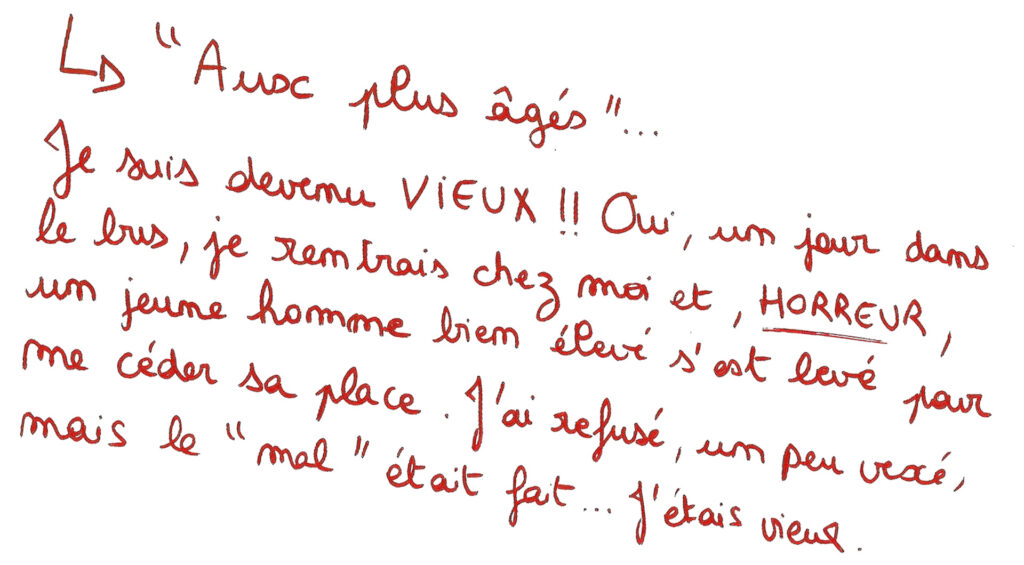 ↳ "Aux plus âgés"...
Je suis devenu VIEUX !! Oui, un jour dans
le bus, je rentrais chez moi et, HORREUR,
un jeune homme bien élevé s'est levé pour
me céder sa place. J'ai refusé, un peu vexé,
mais le "mal" était fait... J'étais vieux.